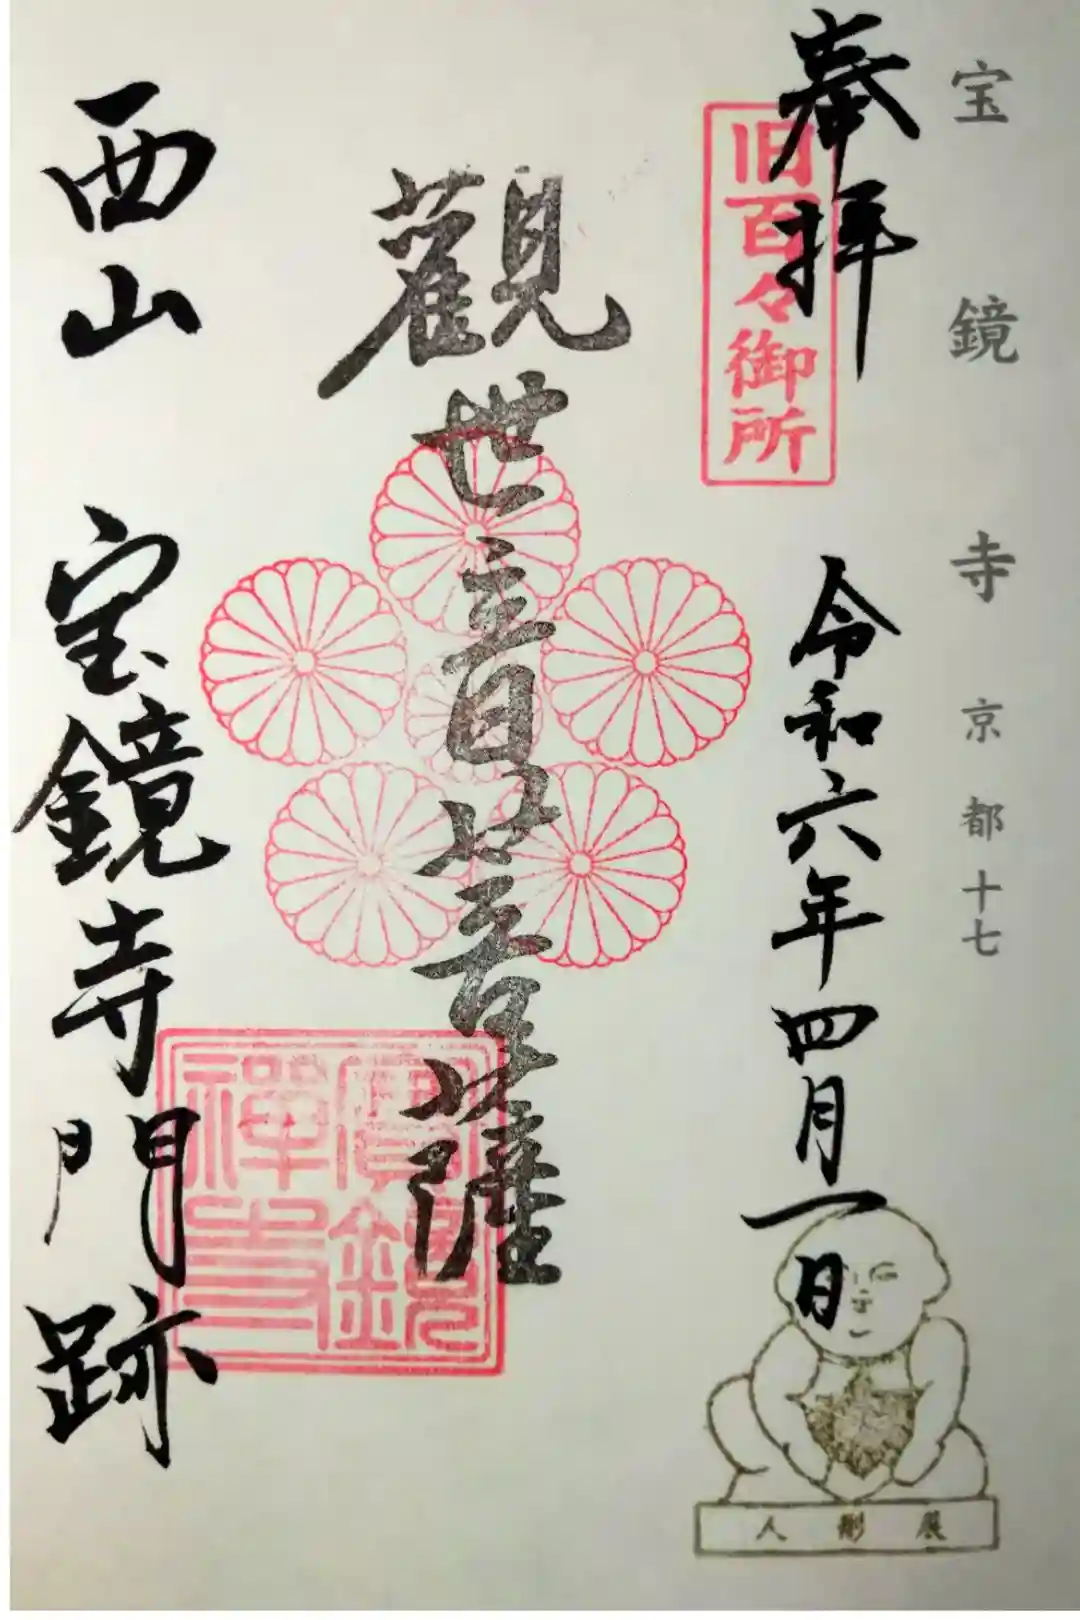 宝鏡寺 京都十七
奉拝
旧百々御所
令和六年四月一日
人形展
觀世音菩薩
寶鏡禅寺
西山 宝鏡寺門跡